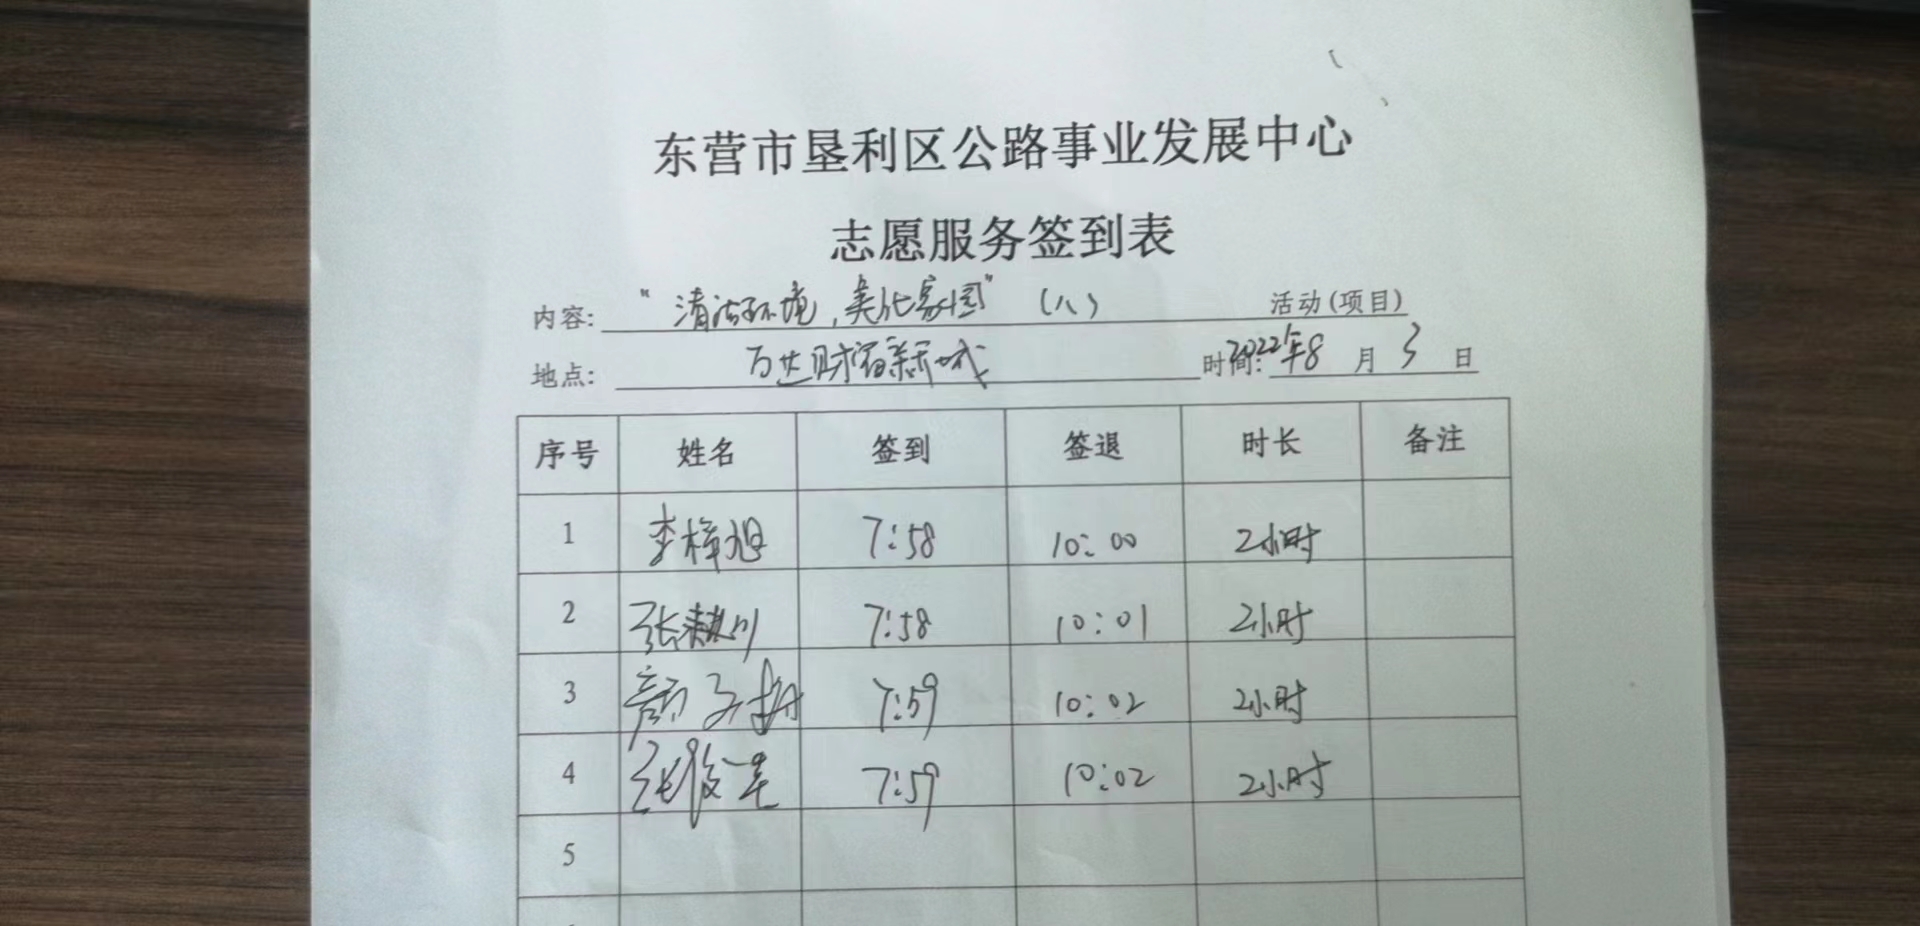 东营市垦利区公路事业发展中心
志愿服务签到表
内容: "清洁环境,美化家园" (八) 活动(项目)
地点: 万达财富新城 时间: 2022年8月3日
序号 姓名 签到 签退 时长 备注
1 李梓旭 7:58 10:00 2小时
2 7:58 10:01 2小时
3 7:59 10:02 2小时
4 7:59 10:02 2小时
5